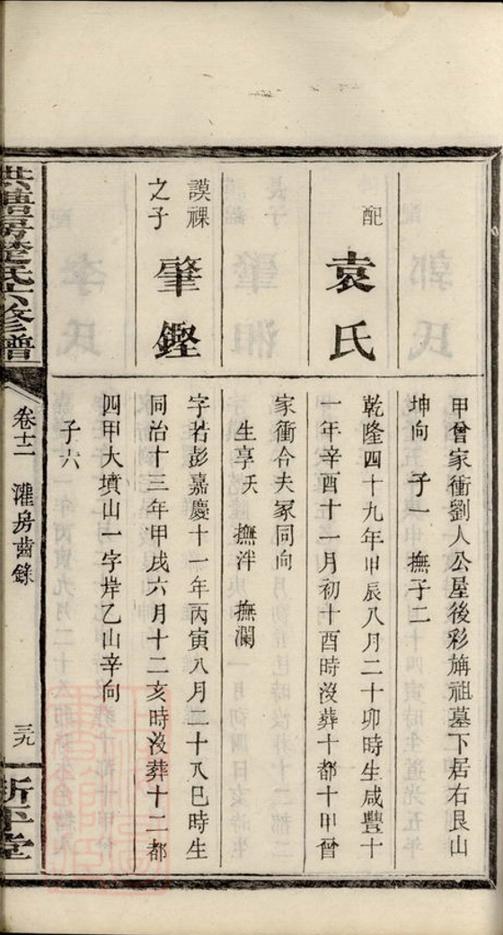 甲曾家衝劉人公屋後彩旃祖墓下居右艮山
坤向 子一 撫子二
配 袁氏
乾隆四十九年甲辰八月二十卯時生咸豐十
一年辛酉十一月初十酉時沒葬十都十甲曾
家衝合夫冢同向
生享天 撫泮 撫瀾
謨祼之子 肇鏗
字若彭嘉慶十一年丙寅八月二十八巳時生
同治十三年甲戌六月十二亥時沒葬十二都
四甲大墳山一字岸乙山辛向
子六
氏六修譜
卷十二 灌房齒錄
三九
堂